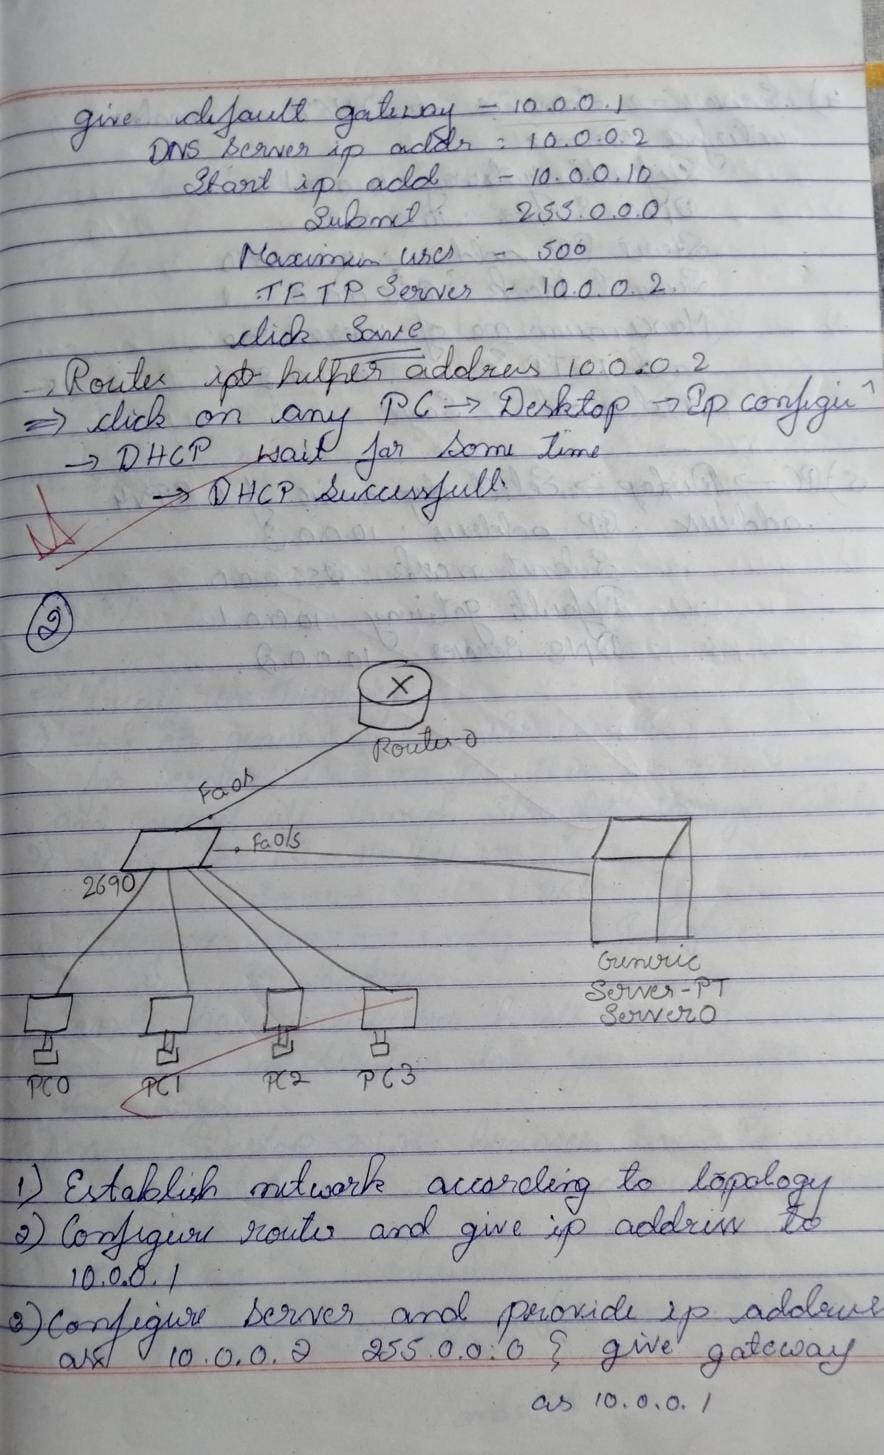 give default gateway - 10.0.0.1
DNS Server ip addr : 10.0.0.2
Start ip add - 10.0.0.10
Subnet 255.0.0.0
Maximum uses - 500
TFTP Server - 10.0.0.2.
click Save
→ Router ip helper address 10.0.0.2
⇒ click on any PC → Desktop → Ip configu
→ DHCP wait for some time
→ DHCP Successfull.
②
X
Router-0
Fa0/1
Fa0/5
2690
Generic
Server-PT
Server0
PC0 PC1 PC2 PC3
1) Establish network according to topology
2) Configure router and give ip address to
10.0.0.1
3) Configure Server and provide ip address
as 10.0.0.2 255.0.0.0 & give gateway
as 10.0.0.1